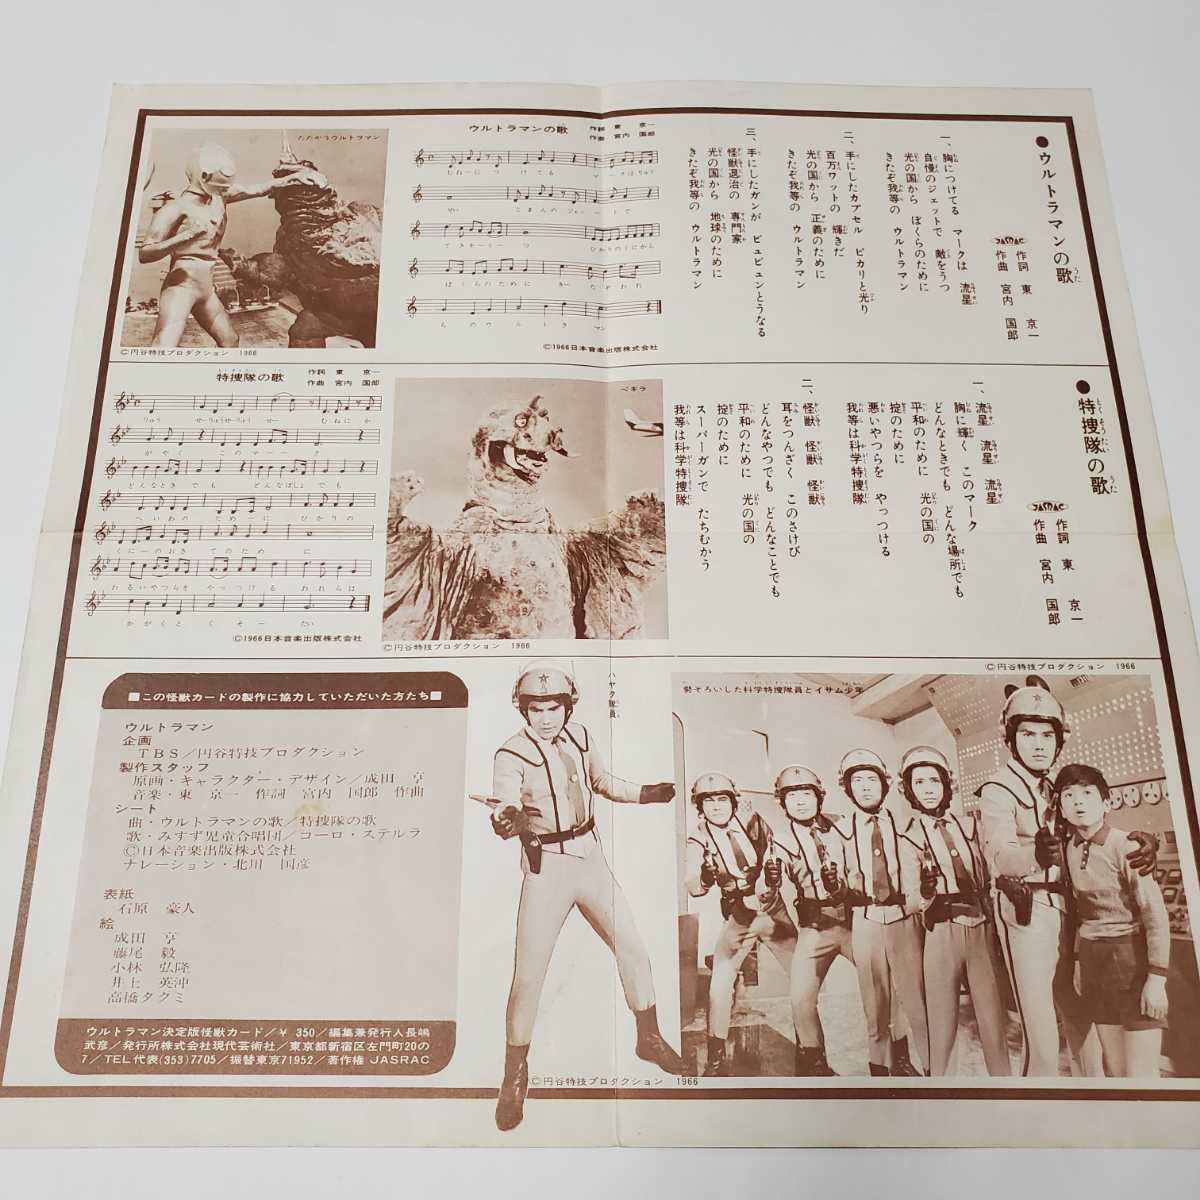 ●ウルトラマンの歌
JASRAC
作詞 東 京一
作曲 宮内 国郎
一、胸につけてる マークは 流星
自慢のジェットで 敵をうつ
光の国から ぼくらのために
きたぞ我等の ウルトラマン
二、手にしたカプセル ピカリと光り
百万ワットの 輝きだ
光の国から 正義のために
きたぞ我等の ウルトラマン
三、手にしたガンが ビュビュンとうなる
怪獣退治の 専門家
光の国から 地球のために
きたぞ我等の ウルトラマン
ウルトラマンの歌
作詞 東 京一
作曲 宮内 国郎
©1966日本音楽出版株式会社
たたかうウルトラマン
©円谷特技プロダクション 1966
●特捜隊の歌
JASRAC
作詞 東 京一
作曲 宮内 国郎
一、流星 流星 流星
胸に輝く このマーク
どんなときでも どんな場所でも
平和のために 光の国の
掟のために
悪いやつらを やっつける
我等は科学特捜隊
二、怪獣 怪獣 怪獣
耳をつんざく このさけび
どんなやつでも どんなことでも
平和のために 光の国の
掟のために
スーパーガンで たちむかう
我等は科学特捜隊
ペギラ
©円谷特技プロダクション 1966
特捜隊の歌
作詞 東 京一
作曲 宮内 国郎
りゅう せーりゅうせーりゅう せー むねにか
がやく このマーーク
どんなとき でも どんなばしょ でも
へいわの ために ひかりの
くにーのおき てのため に
わるいやつらを やっつける われらは
かがくとくそー たい
©1966日本音楽出版株式会社
©円谷特技プロダクション 1966
勢ぞろいした科学特捜隊員とイサム少年
ハヤタ隊員
©円谷特技プロダクション 1966
■この怪獣カードの製作に協力していただいた方たち■
ウルトラマン
企画
TBS/円谷特技プロダクション
製作スタッフ
原画・キャラクター・デザイン/成田 亨
音楽・東 京一 作詞 宮内 国郎 作曲
シート
曲・ウルトラマンの歌/特捜隊の歌
歌・みすず児童合唱団/コーロ・ステルラ
©日本音楽出版株式会社
ナレーション・北川 国彦
表紙
石原 豪人
絵
成田 亨
藤尾 毅
小林 弘隆
井上 英沖
高橋タクミ
ウルトラマン決定版怪獣カード/¥ 350/編集兼発行人長嶋
武彦/発行所株式会社現代芸術社/東京都新宿区左門町20の
7/TEL代表(353)7705/振替東京71952/著作権 JASRAC